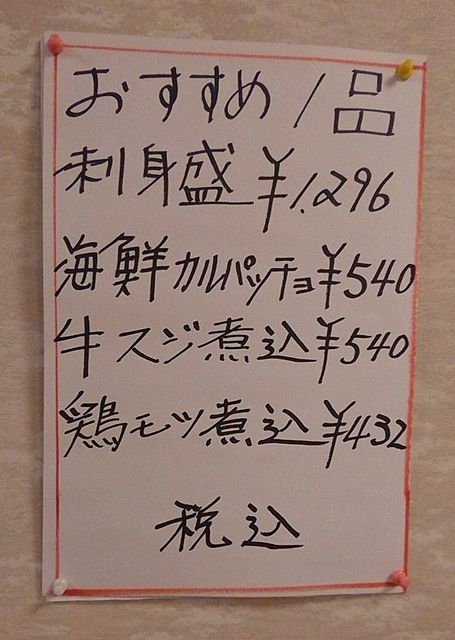 おすすめ1品
刺身盛¥1,296
海鮮カルパッチョ¥540
牛スジ煮込¥540
鶏モツ煮込¥432
税込